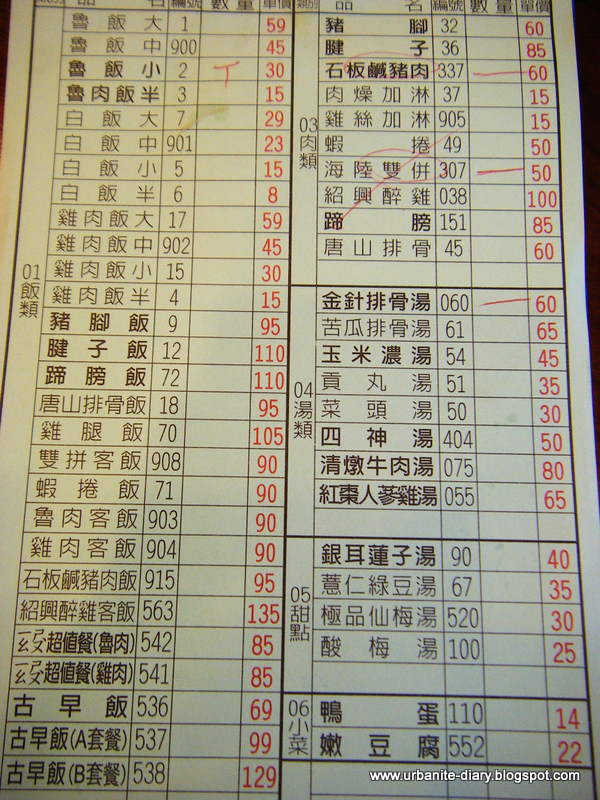 品 名 編號 數量 單價
01飯類
魯飯大 1 59
魯飯中 900 45
魯飯小 2 T 30
魯肉飯半 3 15
白飯大 7 29
白飯中 901 23
白飯小 5 15
白飯半 6 8
雞肉飯大 17 59
雞肉飯中 902 45
雞肉飯小 15 30
雞肉飯半 4 15
豬腳飯 9 95
腱子飯 12 110
蹄膀飯 72 110
唐山排骨飯 18 95
雞腿飯 70 105
雙拼客飯 908 90
蝦捲飯 71 90
魯肉客飯 903 90
雞肉客飯 904 90
石板鹹豬肉飯 915 95
紹興醉雞客飯 563 135
ㄍㄡˋ超值餐(魯肉) 542 85
ㄍㄡˋ超值餐(雞肉) 541 85
古早飯 536 69
古早飯(A套餐) 537 99
古早飯(B套餐) 538 129
類別 品 名 編號 數量 單價
03肉類
豬腳 32 60
腱子 36 85
石板鹹豬肉 337 60
肉燥加淋 37 15
雞絲加淋 905 15
蝦捲 49 50
海陸雙併 307 50
紹興醉雞 038 100
蹄膀 151 85
唐山排骨 45 60
04湯類
金針排骨湯 060 60
苦瓜排骨湯 61 65
玉米濃湯 54 45
貢丸湯 51 35
菜頭湯 50 30
四神湯 404 50
清燉牛肉湯 075 80
紅棗人蔘雞湯 055 65
05甜點
銀耳蓮子湯 90 40
薏仁綠豆湯 67 35
極品仙梅湯 520 30
酸梅湯 100 25
06小菜
鴨蛋 110 14
嫩豆腐 552 22
www.urbanite-diary.blogspot.com